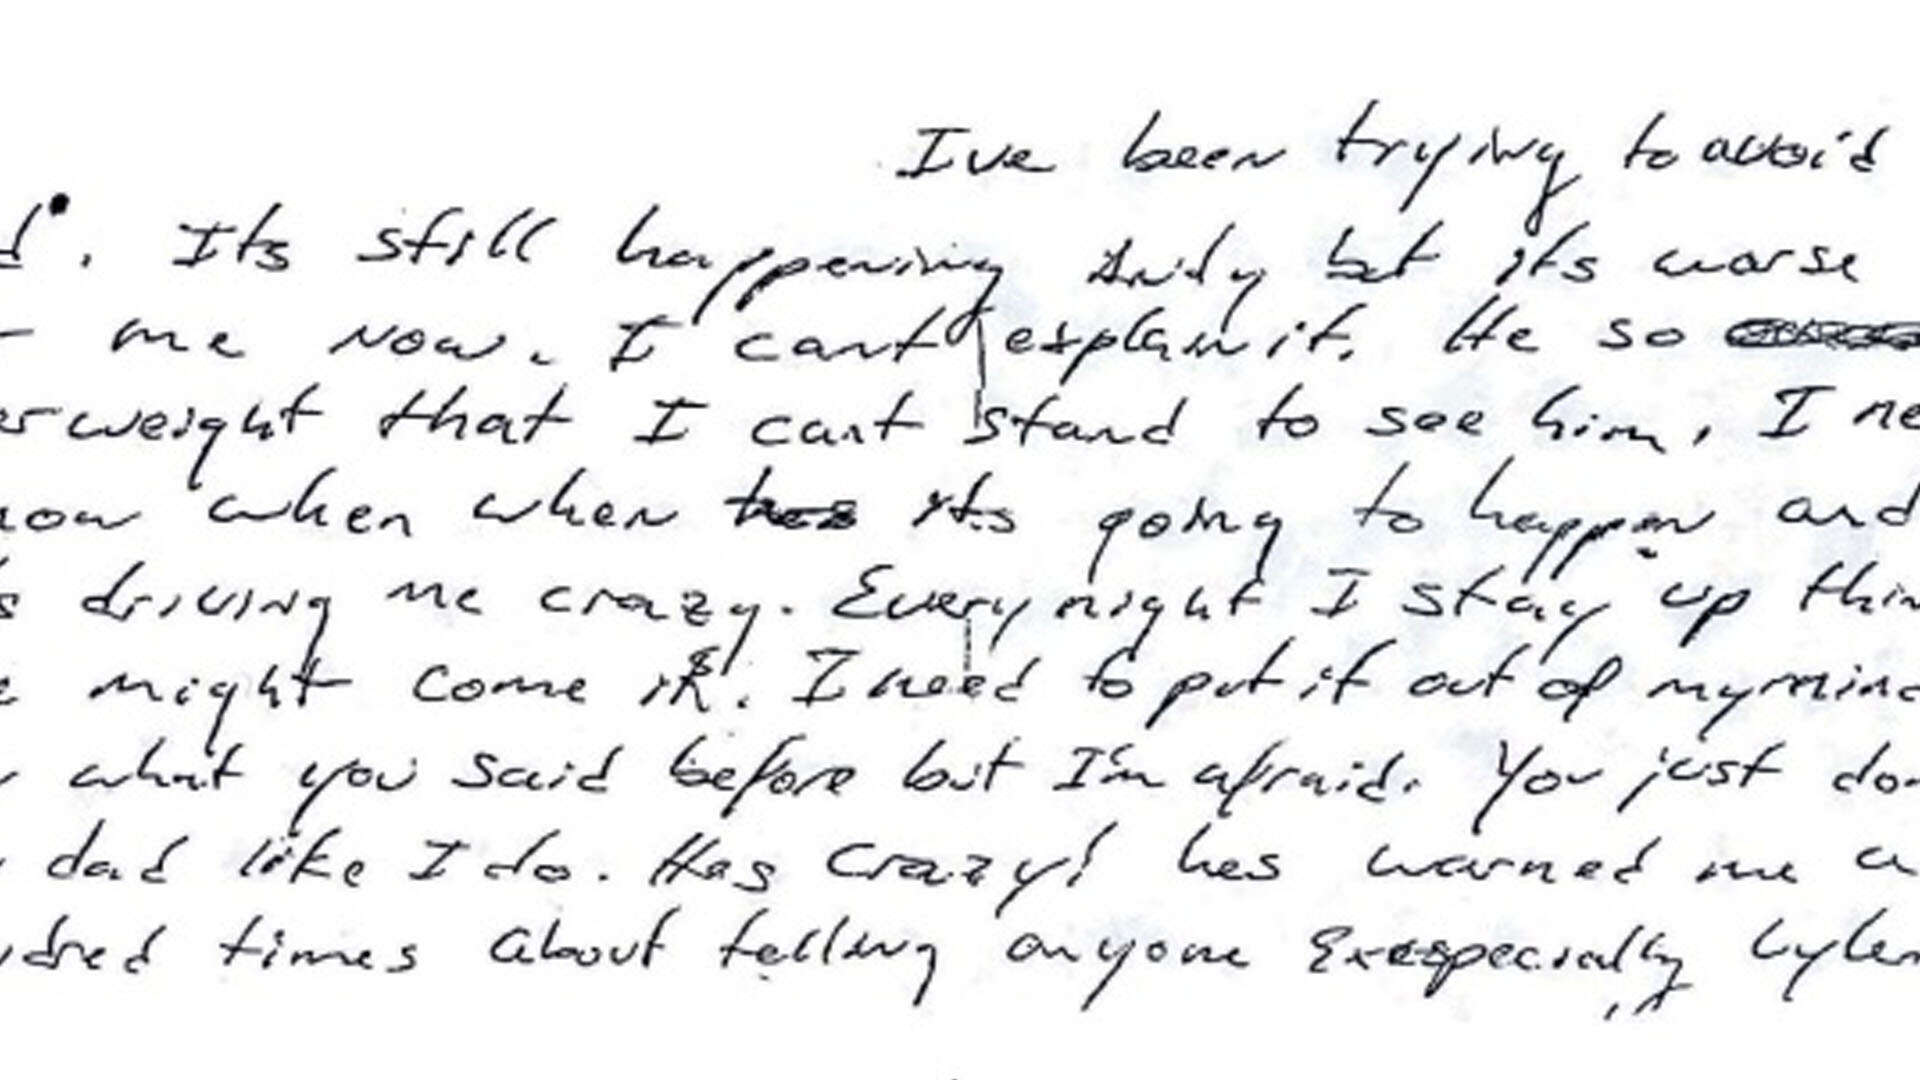 Ive been trying to avoid
d. Its still happening Andy but its worse
me now. I cant explain it. He so
erweight that I cant stand to see him, I ne
now when when its going to happen and
s driving me crazy. Every night I stay up thin
e might come in. I need to put it out of my mind
what you said before but I'm afraid. You just don
dad like I do. Hes crazy! hes warned me a
ndred times about telling anyone Exespecially Lylen